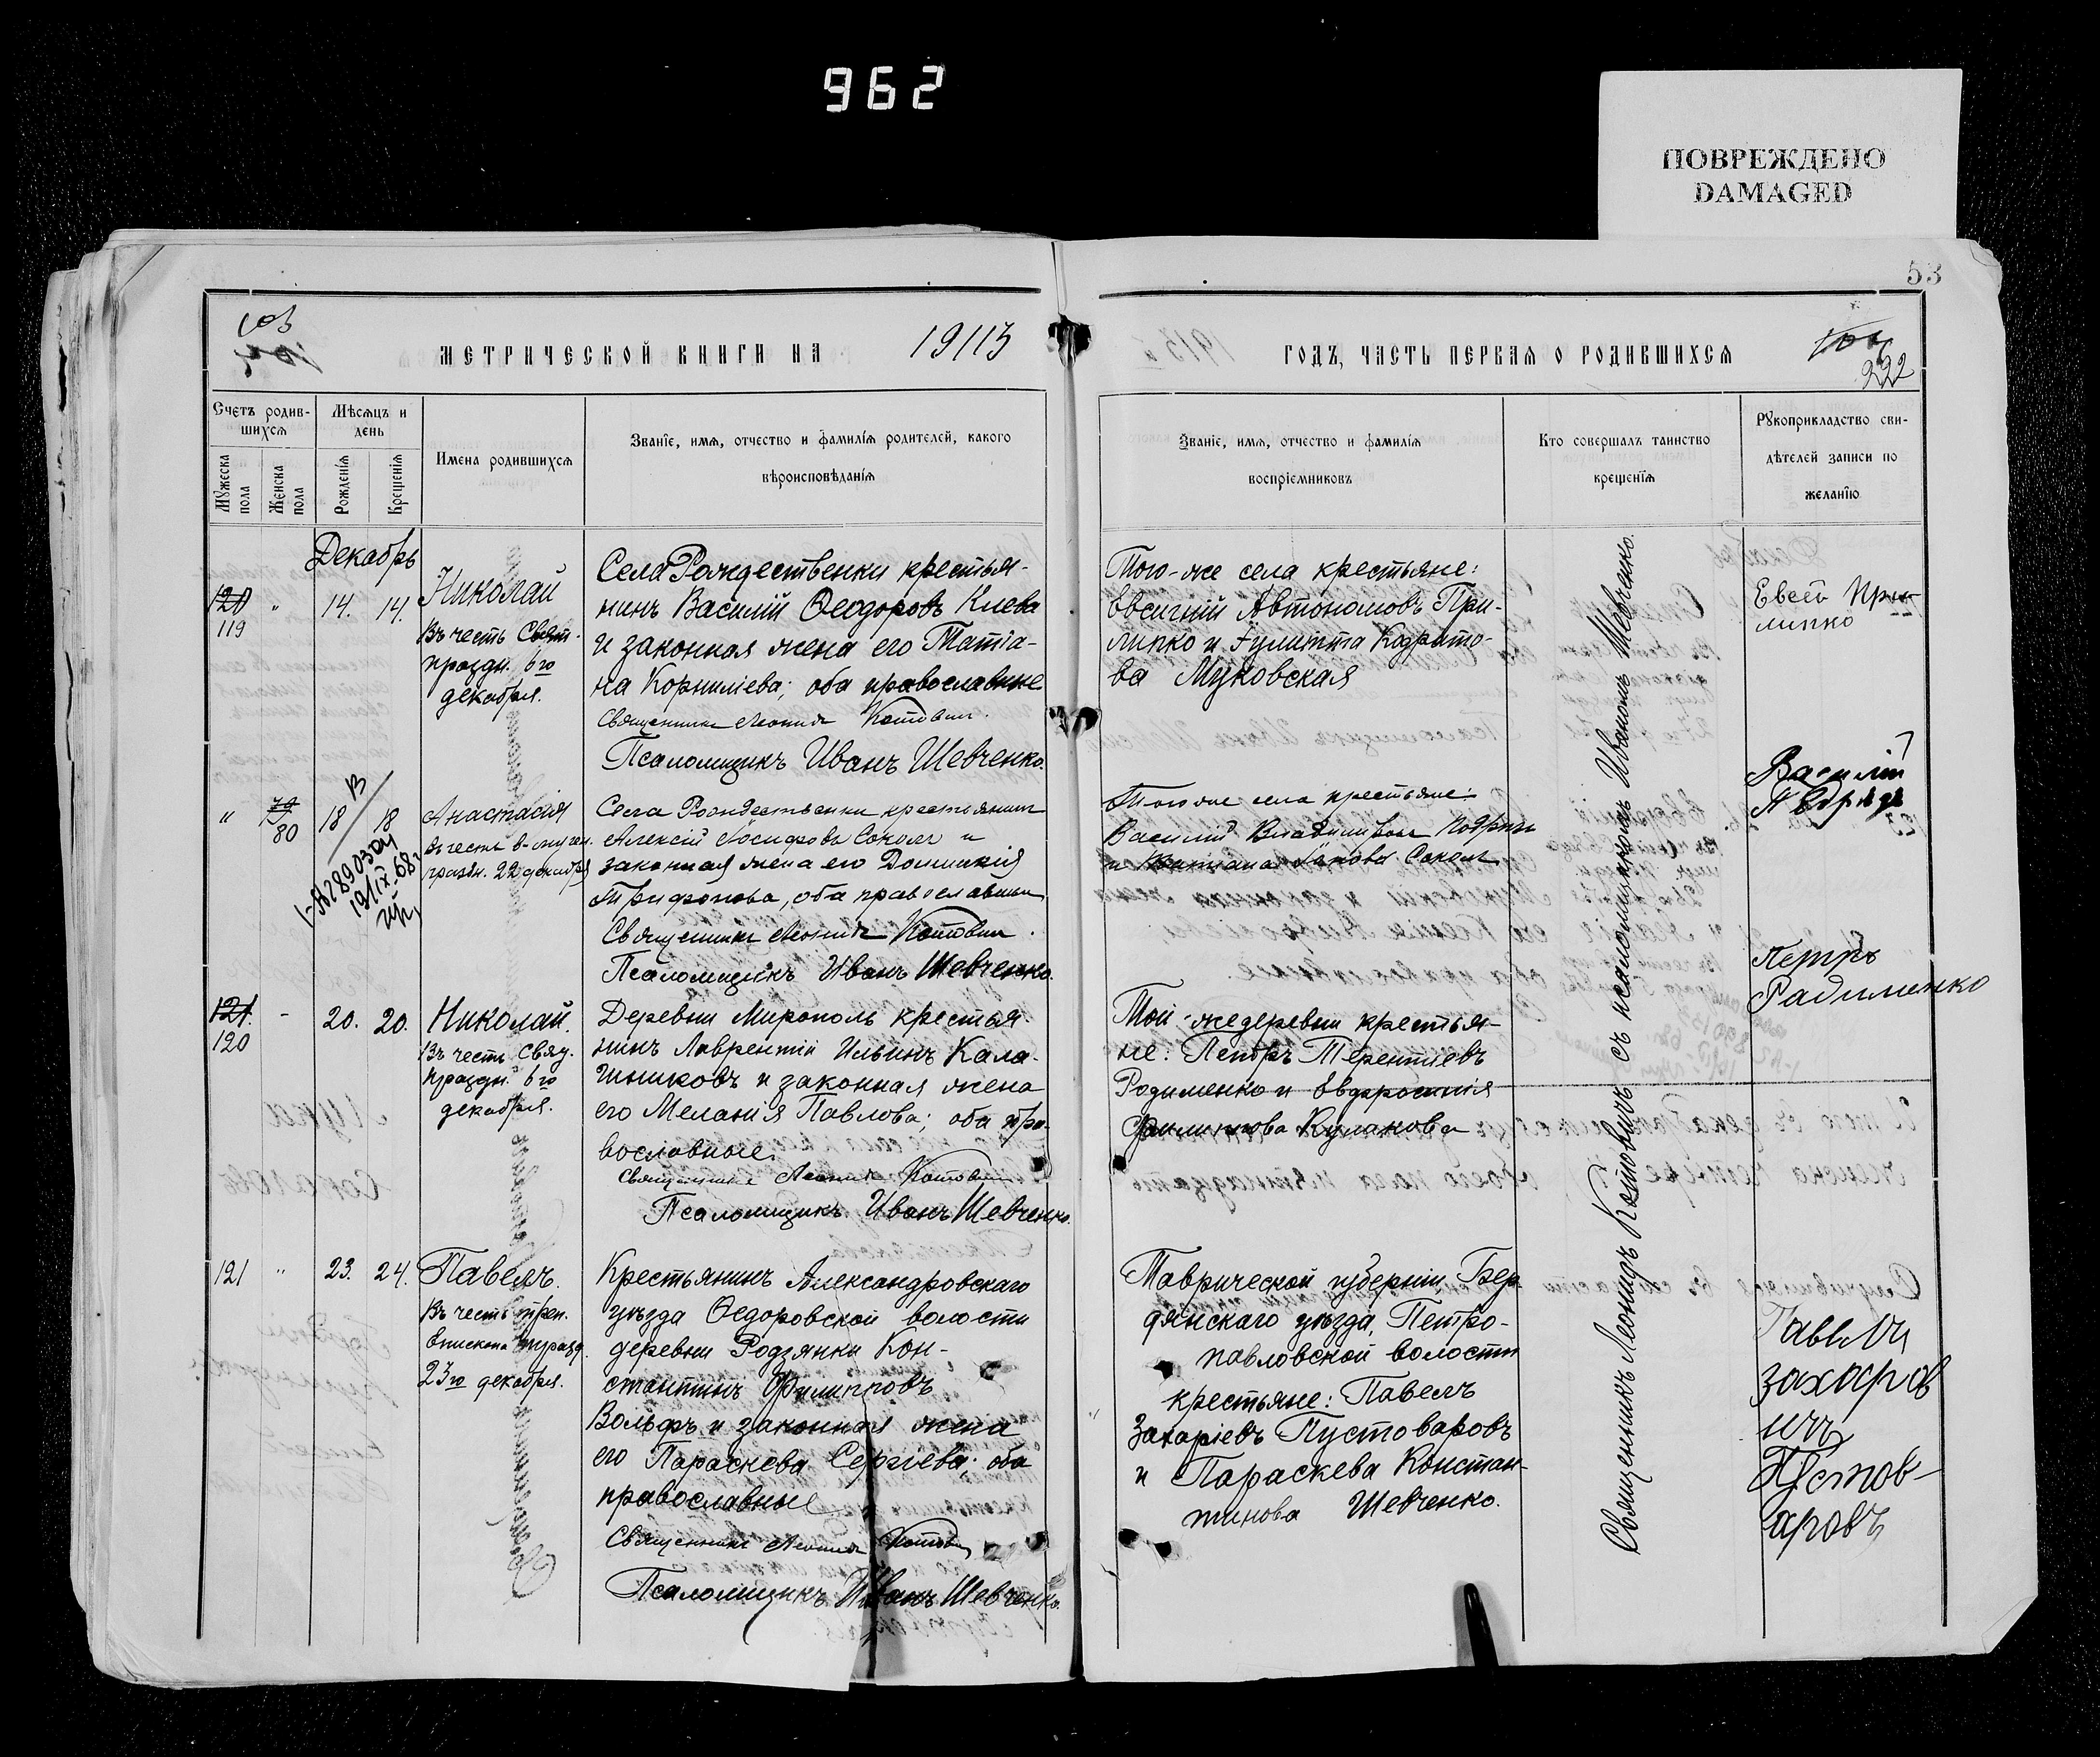 962
ПОВРЕЖДЕНО
DAMAGED
53
103
МЕТРИЧЕСКОЙ КНИГИ НА 1915
ГОДЪ, ЧАСТЬ ПЕРВАЯ О РОДИВШИХСЯ
222
Счетъ родив-
шихся
Мѣсяцъ и
день
Имена родившихся
Званіе, имя, отчество и фамилія родителей, какого
вѣроисповѣданія
Мужеска
пола
Женска
пола
Рожденія
Крещенія
Званіе, имя, отчество и фамилія
воспріемниковъ
Кто совершалъ таинство
крещенія
Рукоприкладство сви-
дѣтелей записи по
желанію
Декабрь
120
119
"
14. 14.
Николай
Въ честь Свят.
праздн. 6го
декабря.
Села Рождественки крестья-
нинъ Василій Ѳеодоровъ Клева
и законная жена его Татіа-
на Корниліева; оба православные
Священникъ Леонидъ Котовичъ.
Псаломщикъ Иванъ Шевченко.
Того-же села крестьяне:
Евсигній Автономовъ При-
липко и Іулитта Кодрато-
ва Муковская
Евсей При
липко
"
79
80
18 18
Анастасія
въ честь в-мучен.
праздн. 22 декабря
Села Рождественки крестьянинъ
Алексій Іосифовъ Соколъ и
законная жена его Домникія
Трифонова, оба православны
Священникъ Леонидъ Котовичъ.
Псаломщикъ Иванъ Шевченко.
Того же села крестьяне:
Василій Владиміровъ
и Іакова Соколъ
Василій
19/IX 68г
121.
120
-
20. 20.
Николай.
Въ честь Свят.
праздн. 6го
декабря.
Деревни Мирополь крестья-
нинъ Лаврентій Ильинъ Кала-
шниковъ и законная жена
его Меланія Павлова; оба пра-
вославные.
Священникъ Леонидъ Котовичъ
Псаломщикъ Иванъ Шевченко.
Той-же деревни крестья-
не: Петръ Терентіевъ
Родименко и Евфросинія
Филиппова Кулакова
Петръ
Радименко
121
"
23. 24.
Павелъ.
Въ честь
Епископа празд.
23го декабря.
Крестьянинъ Александровскаго
уѣзда Ѳедоровской волости
деревни Родзянки Кон-
стантинъ Филипповъ
Вольфъ и законная жена
его Параскева Сергіева; оба
православные
Священникъ Леонидъ Котовичъ
Псаломщикъ Иванъ Шевченко.
Таврической губерніи Бер-
дянскаго уѣзда, Петро-
павловской волости
крестьяне: Павелъ
Захаріевъ Пустоваровъ
и Параскева Констан-
тинова Шевченко.
Павелъ
Захаров
ичъ
Пустов-
аровъ
Священникъ Леонидъ Котовичъ съ псаломщикомъ Иваномъ Шевченко.